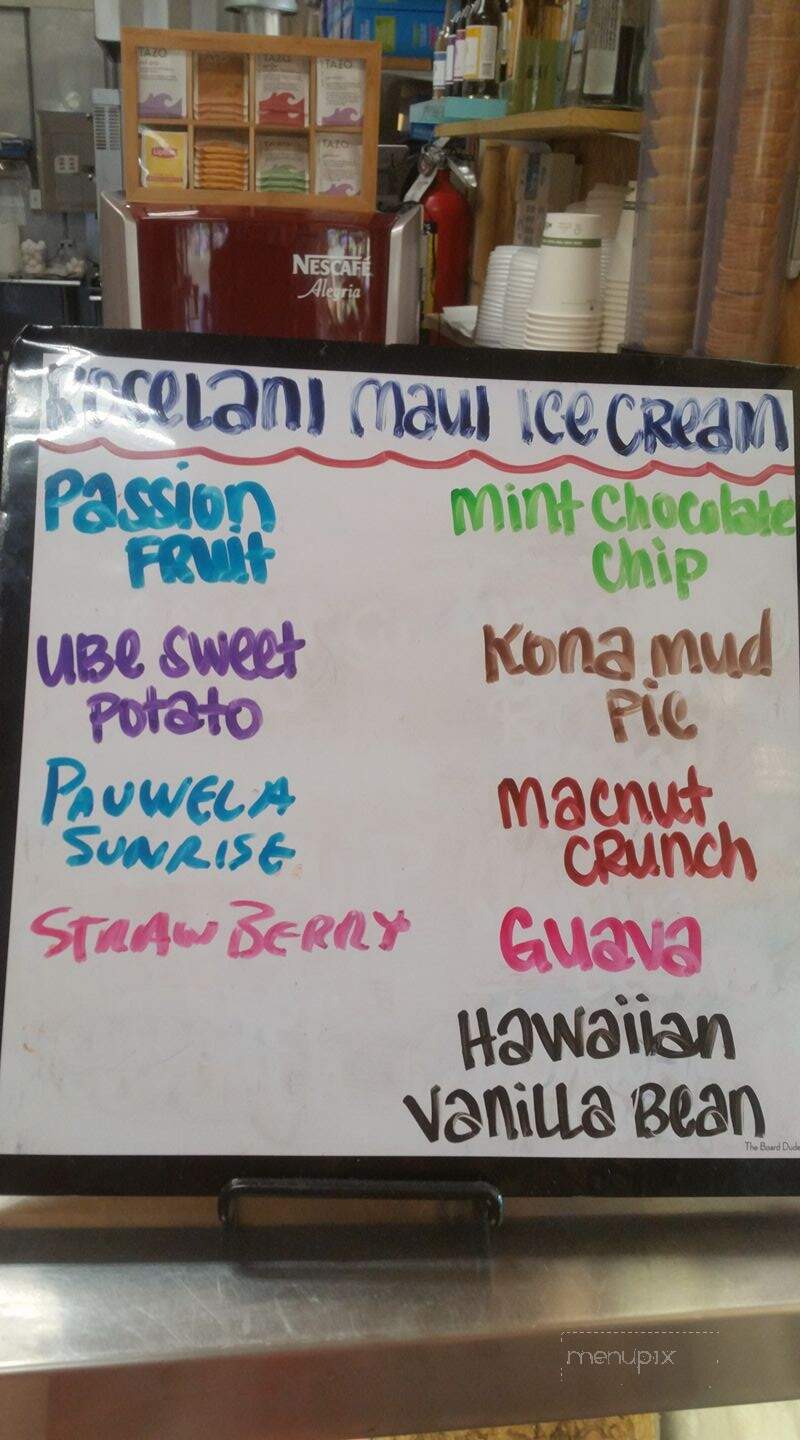 TAZO
TAZO
TAZO
TAZO
Lipton
NESCAFÉ
Alegria
Roselani Maui Ice Cream
Passion
Fruit
Ube Sweet
Potato
PAUWELA
SUNRISE
STRAWBERRY
Mint Chocolate
Chip
Kona Mud
Pie
Macnut
Crunch
Guava
Hawaiian
Vanilla Bean
The Board Dude
menupix